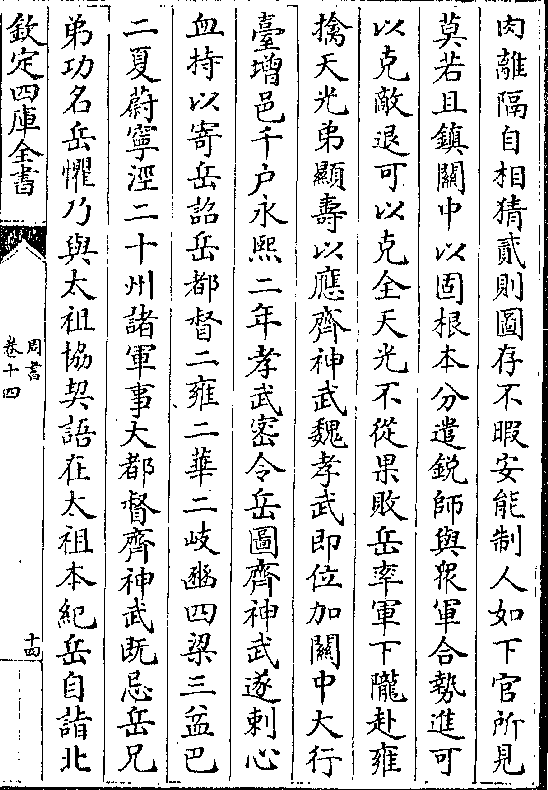 肉離隔自相猜貳則圖存不暇安能制人如下官所見
莫若且鎮關中以固根本分遣銳師與衆軍合勢進可
以克敵退可以克全天光不從果敗岳率軍下隴赴雍
擒天光弟顯壽以應齊神武魏孝武即位加關中大行
臺增邑千户永熙二年孝武密令岳圖齊神武遂刺心
血持以寄岳詔岳都督二雍二華二岐豳四梁三益巴
二夏蔚寧涇二十州諸軍事大都督齊神武既忌岳兄
弟功名岳懼乃與太祖協契語在太祖本紀岳自詣北
欽定四庫全書
周書
卷十四
十四